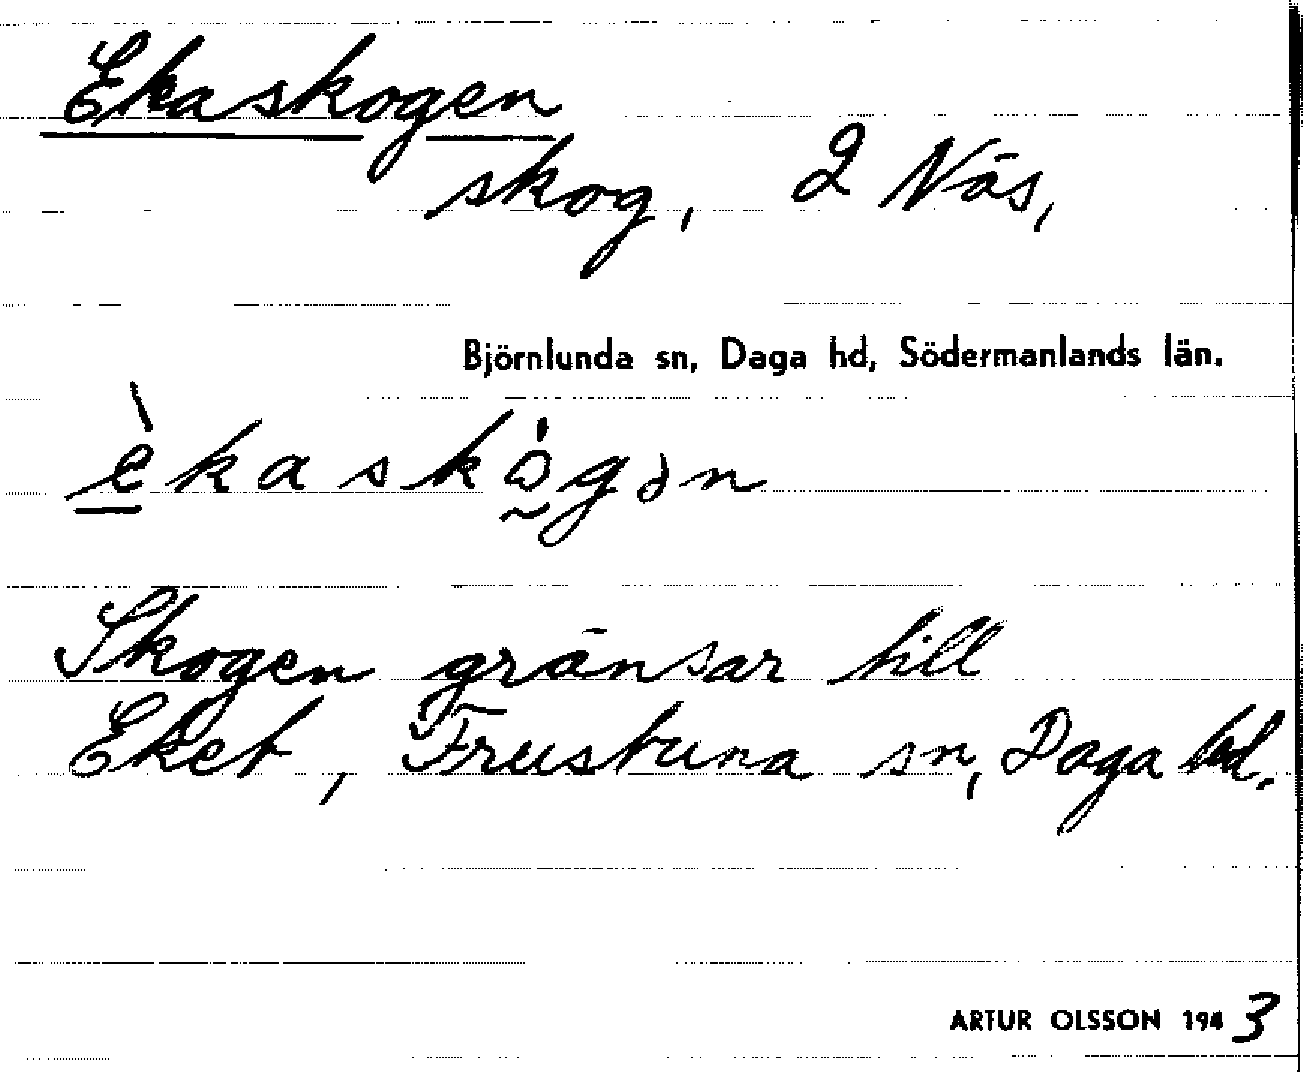 Ekaskogen
skog, 2 Näs,
Björnlunda sn, Daga hd, Södermanlands län.
èkaskògən
Skogen gränsar till
Eket, Frustuna sn, Daga hd.
ARTUR OLSSON 1943